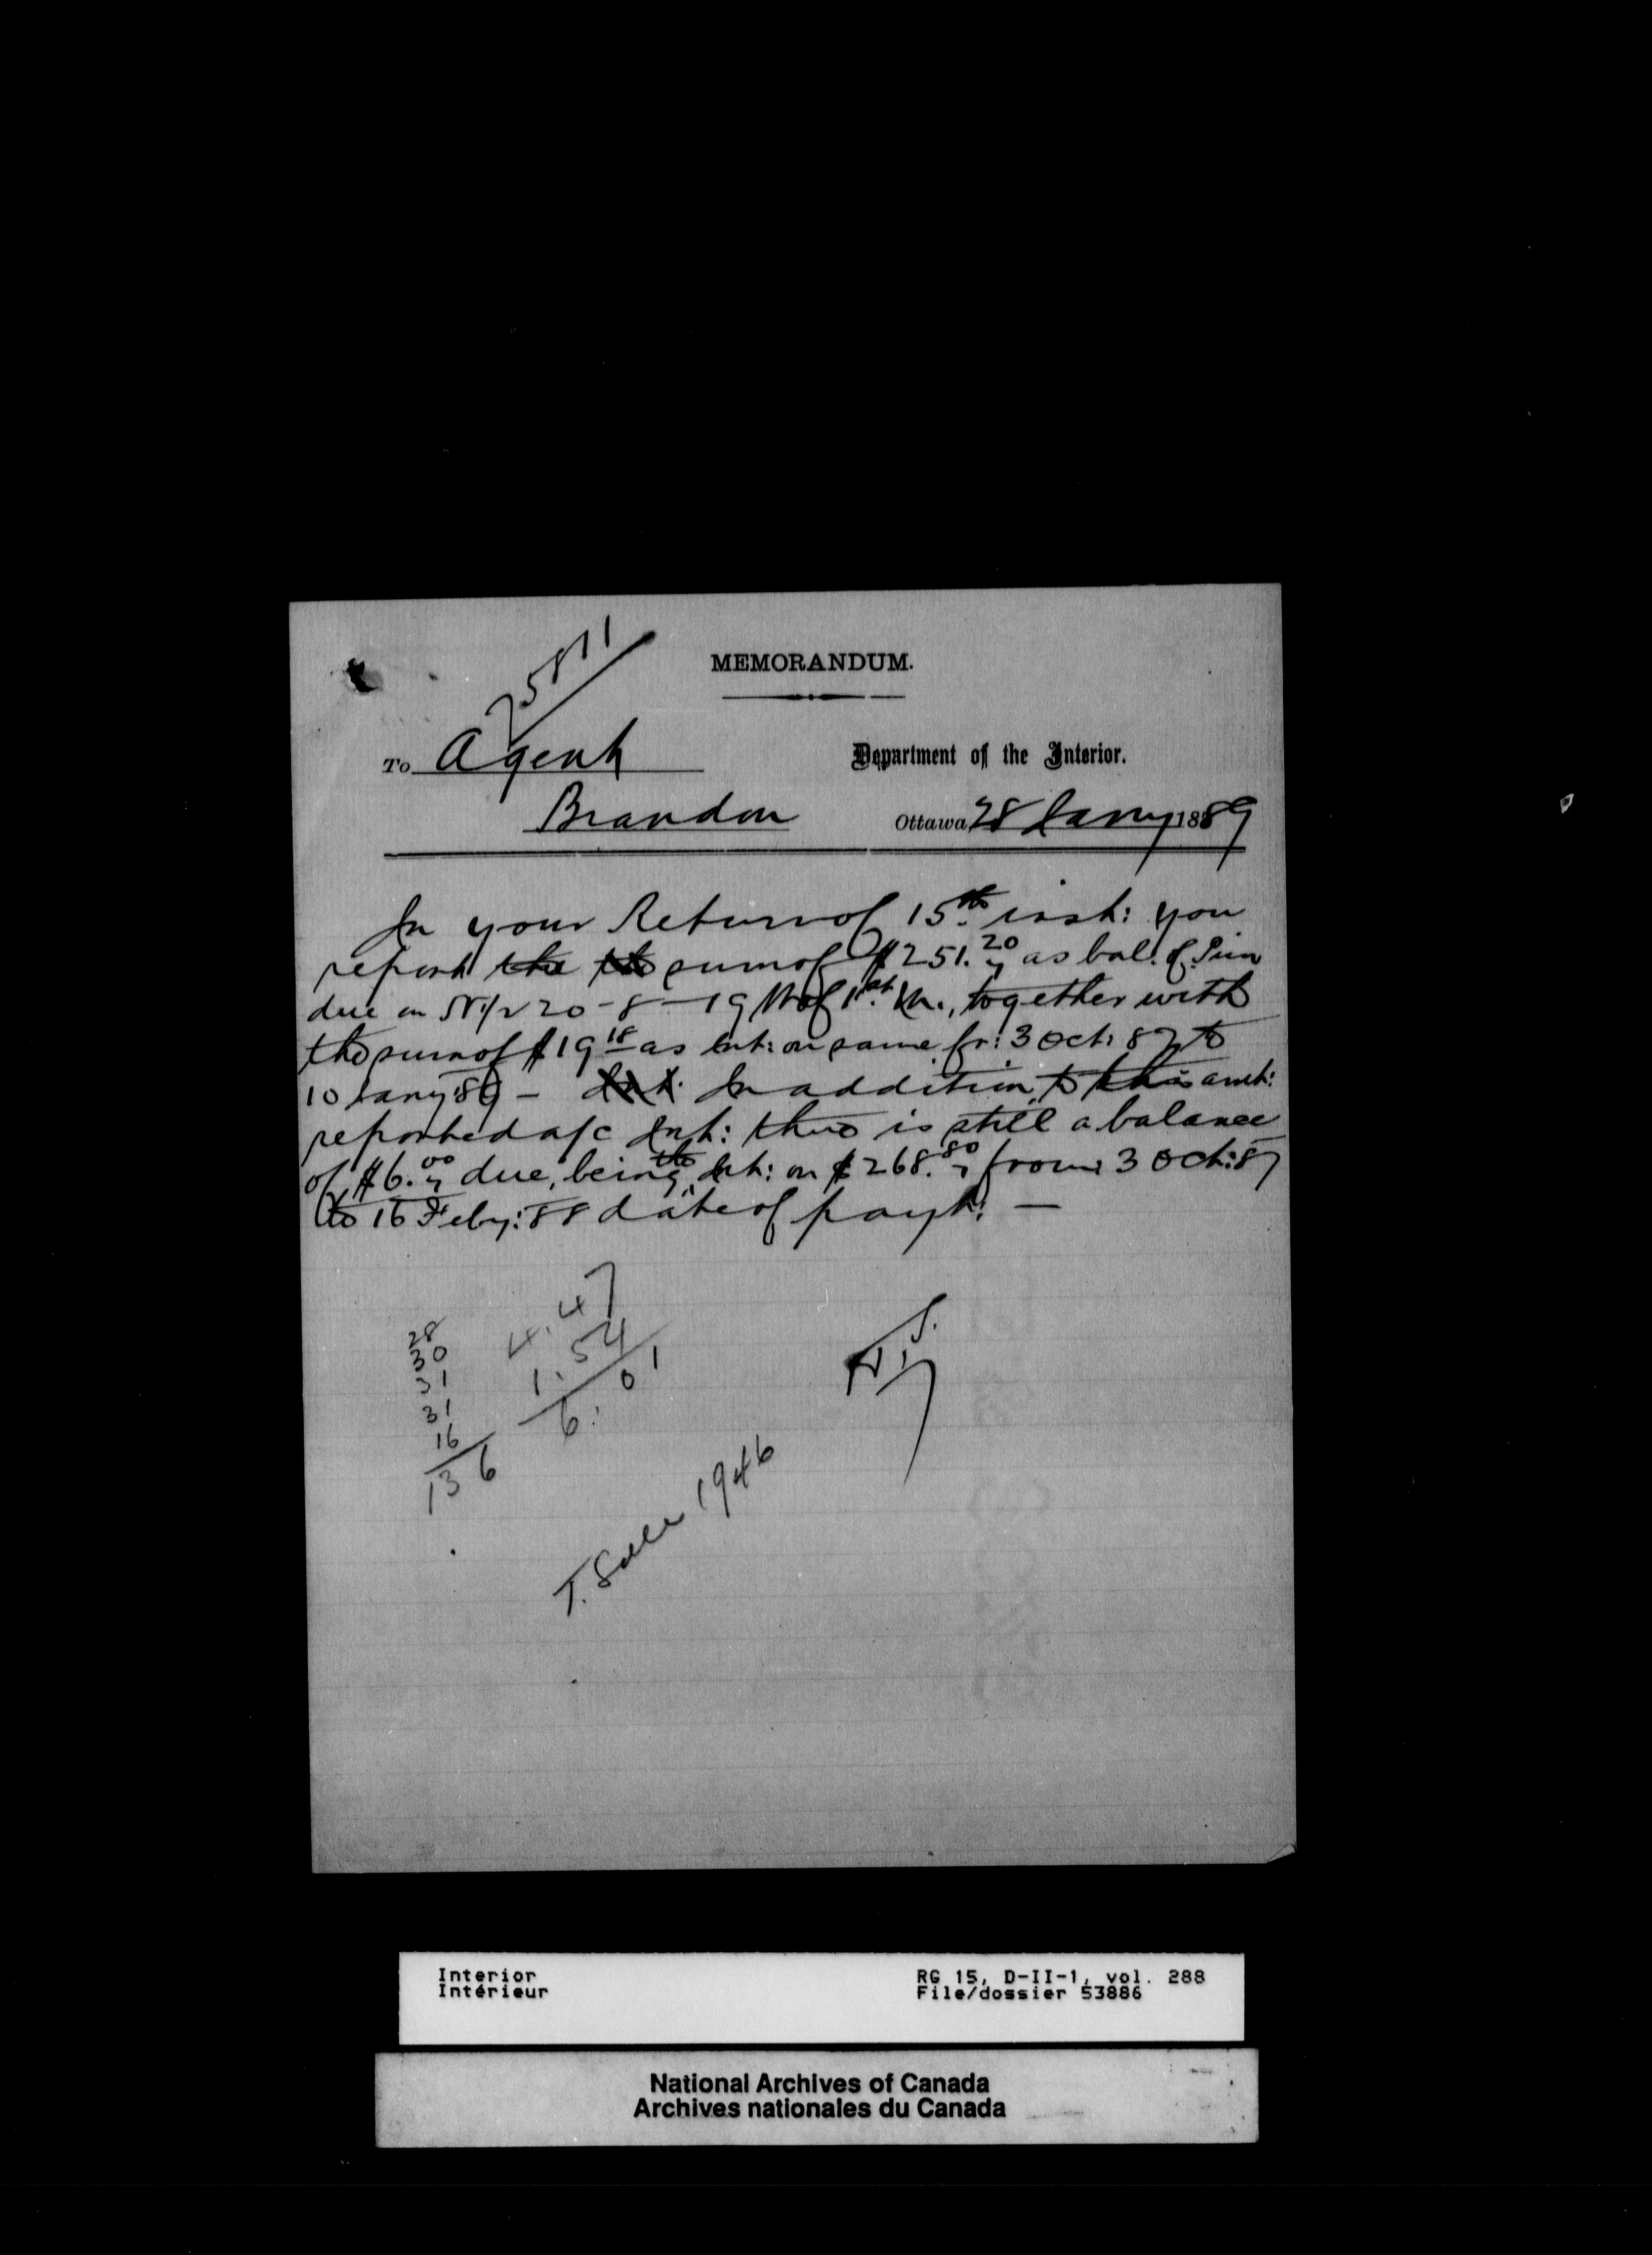 25811
MEMORANDUM.
To Agent
Department of the Interior.
Brandon
Ottawa 28 Jany 1889
In your Return of 15th inst: you
report the the sum of $251.20 as bal. of Prin
due on N½ 20-8-19 W of 1st M., together with
the sum of $19 18 as Int: on same fr: 3 Oct: 87 to
10 Jany: 89 - Int: In addition to this amt:
reported a/c Int: there is still a balance
of $6.00 due, being the Int: on $268.80 from 3 Oct: 87
to 16 Feby: 88 date of payt: —
28
30
31
31
16
136
4.47
1.54
6.01
T. Sale 1946
Interior
Intérieur
RG 15, D-II-1, vol. 288
File/dossier 53886
National Archives of Canada
Archives nationales du Canada